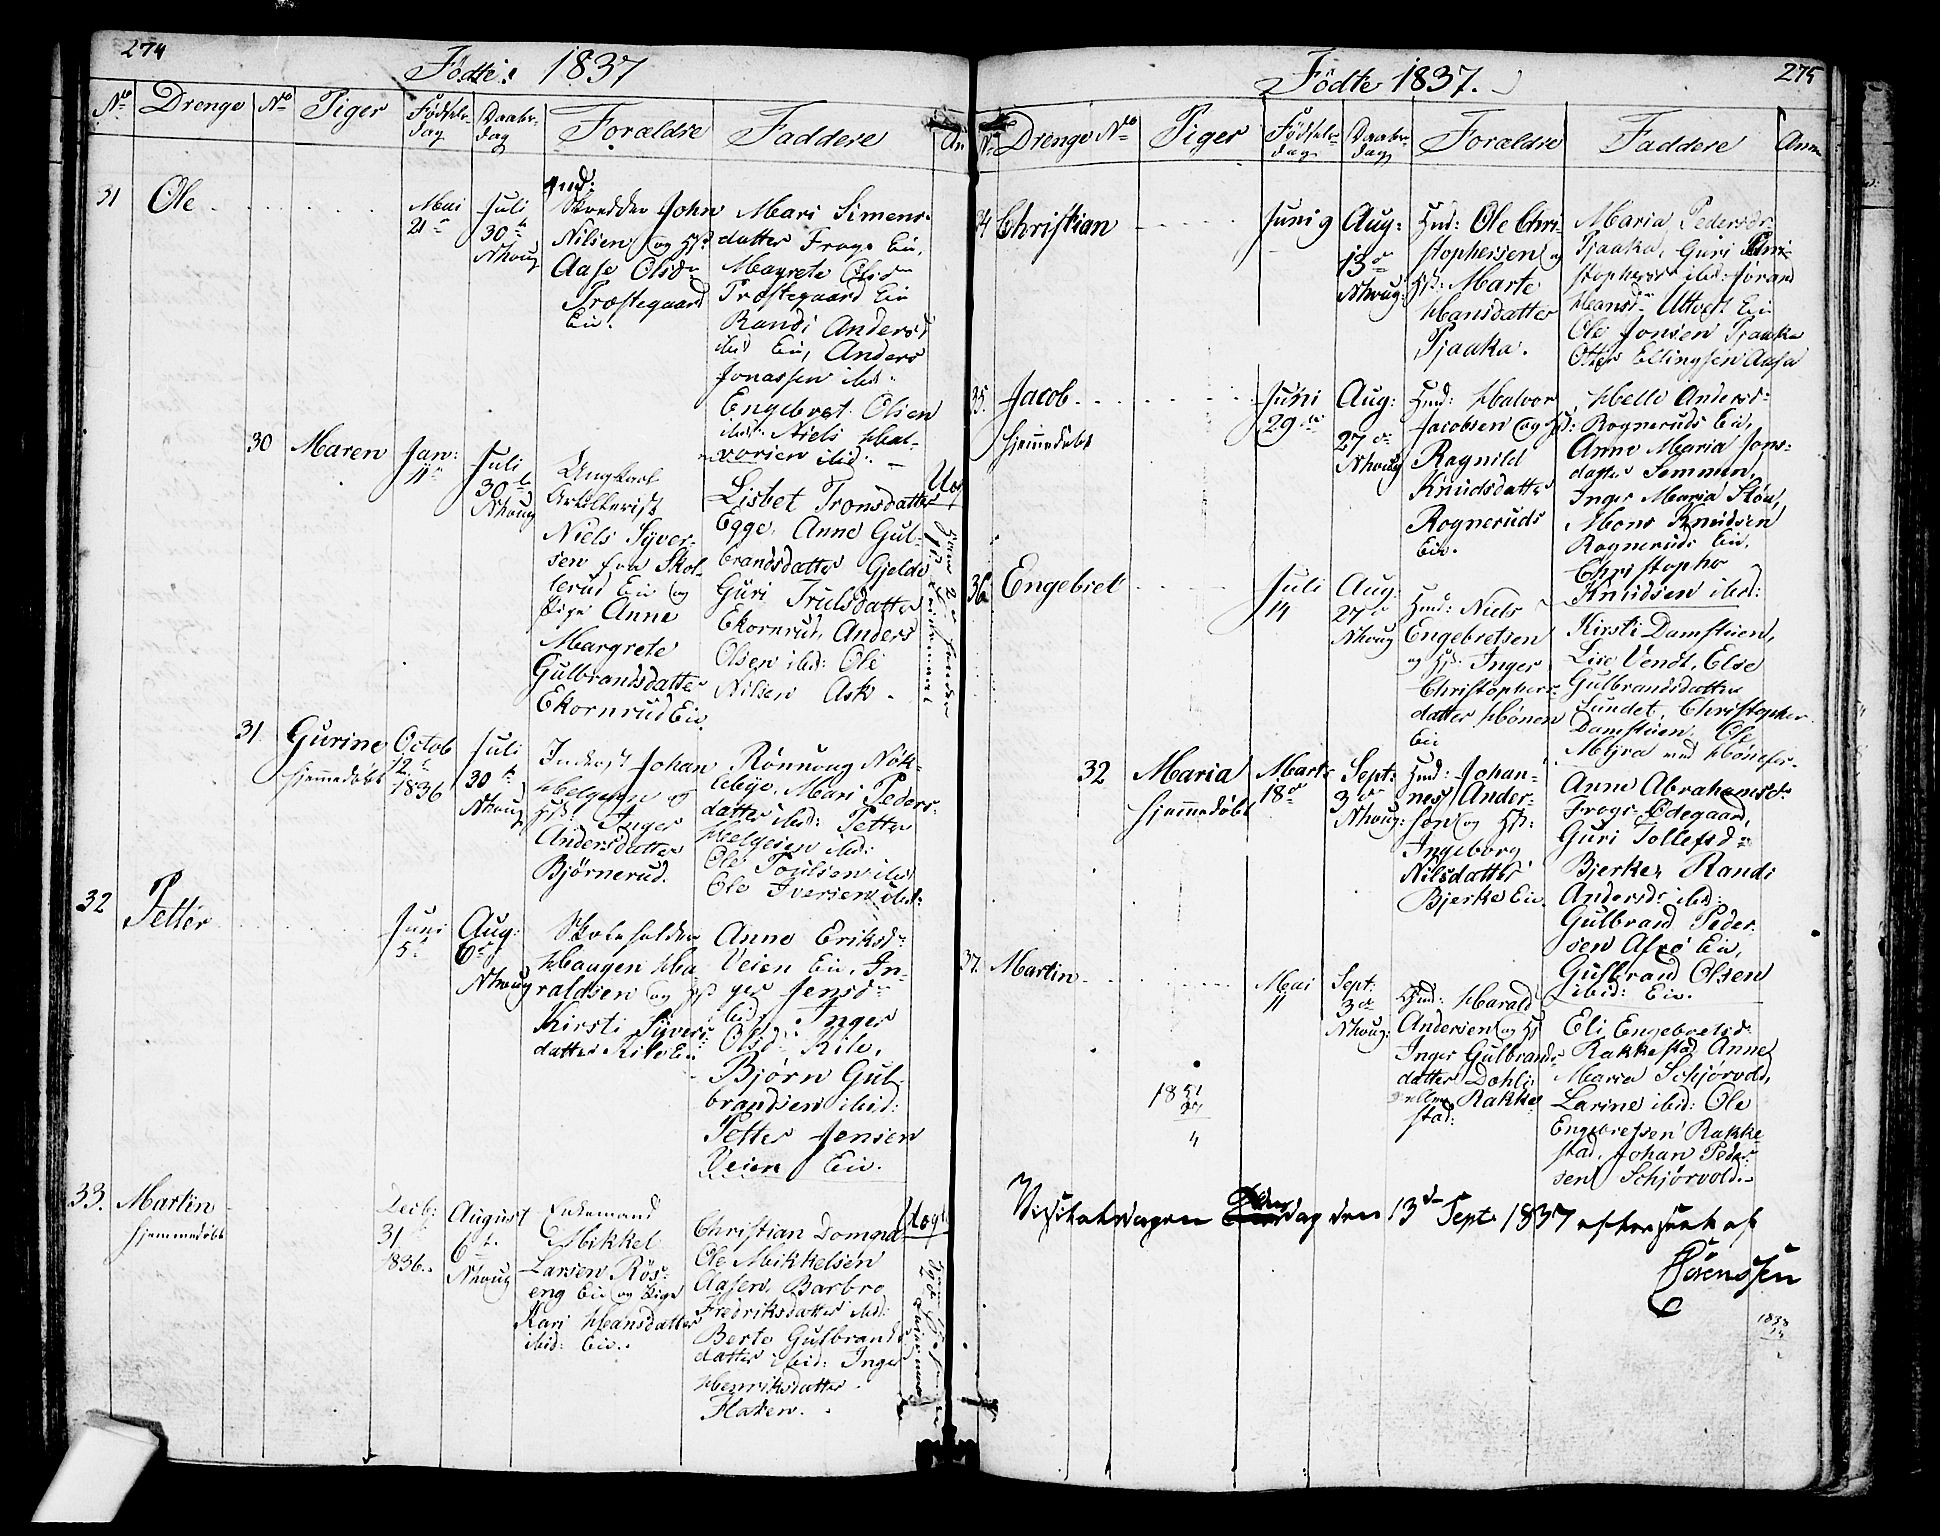 274
Födte: 1837
No Drenge No Piger Födsels-dag Daabs-dag Forældre Faddere An
31 Ole
Mai 21
Juli 30
Nhoug
Ind:
Skrædder John
Nilsen og
Aase Olsd
Præstegaard
Eie.
Mari Simens-
datter Frogs Eie,
Magrete Olsd
Præstegaard Eie
Randi Andersd
ibid Eie, Anders
Jonassen ibid.
Engebret Olsen
ibid. Niels Hal-
vorsen ibid.
30 Maren
Jan: 11
Juli 30
Nhoug
Ungkarl
Artillerist
Niels Syver-
sen fra Skol-
lerud Eie og
Pige Anne
Margrete
Gulbrandsdatter
Ekornrud Eie.
Lisbet Tronsdatter
Egge, Anne Gul-
brandsdatter Gjelde
Guri Trulsdatter
Ekornrud, Anders
Olsen ibid: Ole
Nilsen Ask.
31 Gurine
hjemmedöbt
Octob 12
1836
Juli 30
Nhoug
Inderst Johan
Helgesen og
Inger
Andersdatter
Bjørnerud.
Rönnoug Nök-
lebye, Mari Peders-
datter ibid: Petter
Helgesen ibid:
Ole Poulsen ibid
Ole Iversen ibid:
32 Petter
Juni 5
Aug: 6
Nhoug
Skoleholder
Haagen Ha-
raldsen og
Kirsti Syvers-
datter Kile Eie
Anne Eriksd
Veien Eie, In-
ger Jensd
ibid, Inger
Olsd Kile,
Bjørn Gul-
brandsen ibid:
Petter Jensen
Veien Eie.
33. Martin
hjemmedöbt
Decb: 31
1836.
August 6
Nhoug
Enkemand
Mikkel
Larsen Rös-
eng Eie og Pige
Kari Hansdatter
ibid: Eie.
Christian Domna
Ole Mikkelsen
Aasen, Barbro
Fredriksdatter ibid:
Berte Gulbrands
datter ibid: Inger
Henriksdatter
Flaken.
Uægt
275
Födte 1837.
No Drenge No Piger Födsels-dag Daabs-dag Forældre Faddere Anm
34 Christian
Juni 9
Aug: 13
Nhoug:
Hmd: Ole Chri-
stophersen og
Hs: Marte
Hansdatter
Tjaaka.
Maria Pedersdr
Tjaaka, Guri Chri-
stophersd ibid: Jörand
Hansd Utvet Eie
Ole Jonsen Tjaaka
Otter Ellingsen Aasa
35. Jacob
hjemmedöbt
Juni 29
Aug: 27
Nhoug
Hmd: Halvor
Jacobsen og Hs:
Ragnild
Knudsdatter
Rogneruds
Eie.
Helle Andersd:
Rogneruds Eie,
Anne Maria Jons-
datter Semmen,
Inger Maria Stöa,
Mons Knudsen
Rogneruds Eie,
Christopher
Knudsen ibid:
36 Engebret
Juli 14
Aug: 27
Nhoug
Hmd: Niels
Engebretsen
og Hs: Inger
Christophers-
datter Hönen
Eie
Kirsti Damstuen,
Lise Vendt, Else
Gulbrandsdatter
Lundet, Christopher
Damstuen, Ole
Myra ved Hönefos.
32 Maria
hjemmedöbt
Marts 18
Sept: 3
Nhoug:
Hmd: Johan-
nes Ander-
sen og Hs:
Ingeborg
Nilsdatter
Bjerke Eie.
Anne Abrahamsdr
Frogs Ödegaard,
Guri Tollefsd
Bjerke, Randi
Andersd: ibid:
Gulbrand Peder-
sen Eie,
Gulbrand Olsen
ibid: Eie.
37. Martin
Mai 11
Sept: 3
Nhoug:
Hmd: Harald
Andersen og Hs
Inger Gulbrands-
datter Dæhli
Rakke-
stad:
Eli Engebretsd
Rakkestad, Anne
Maria Schjörvold,
Larine ibid: Ole
Engebretsen Rakke-
stad, Johan Peder-
sen Schjörvold.
Visitatsdagen dag den 13de Sept. 1837 efterseet af
Sörenssen
1838